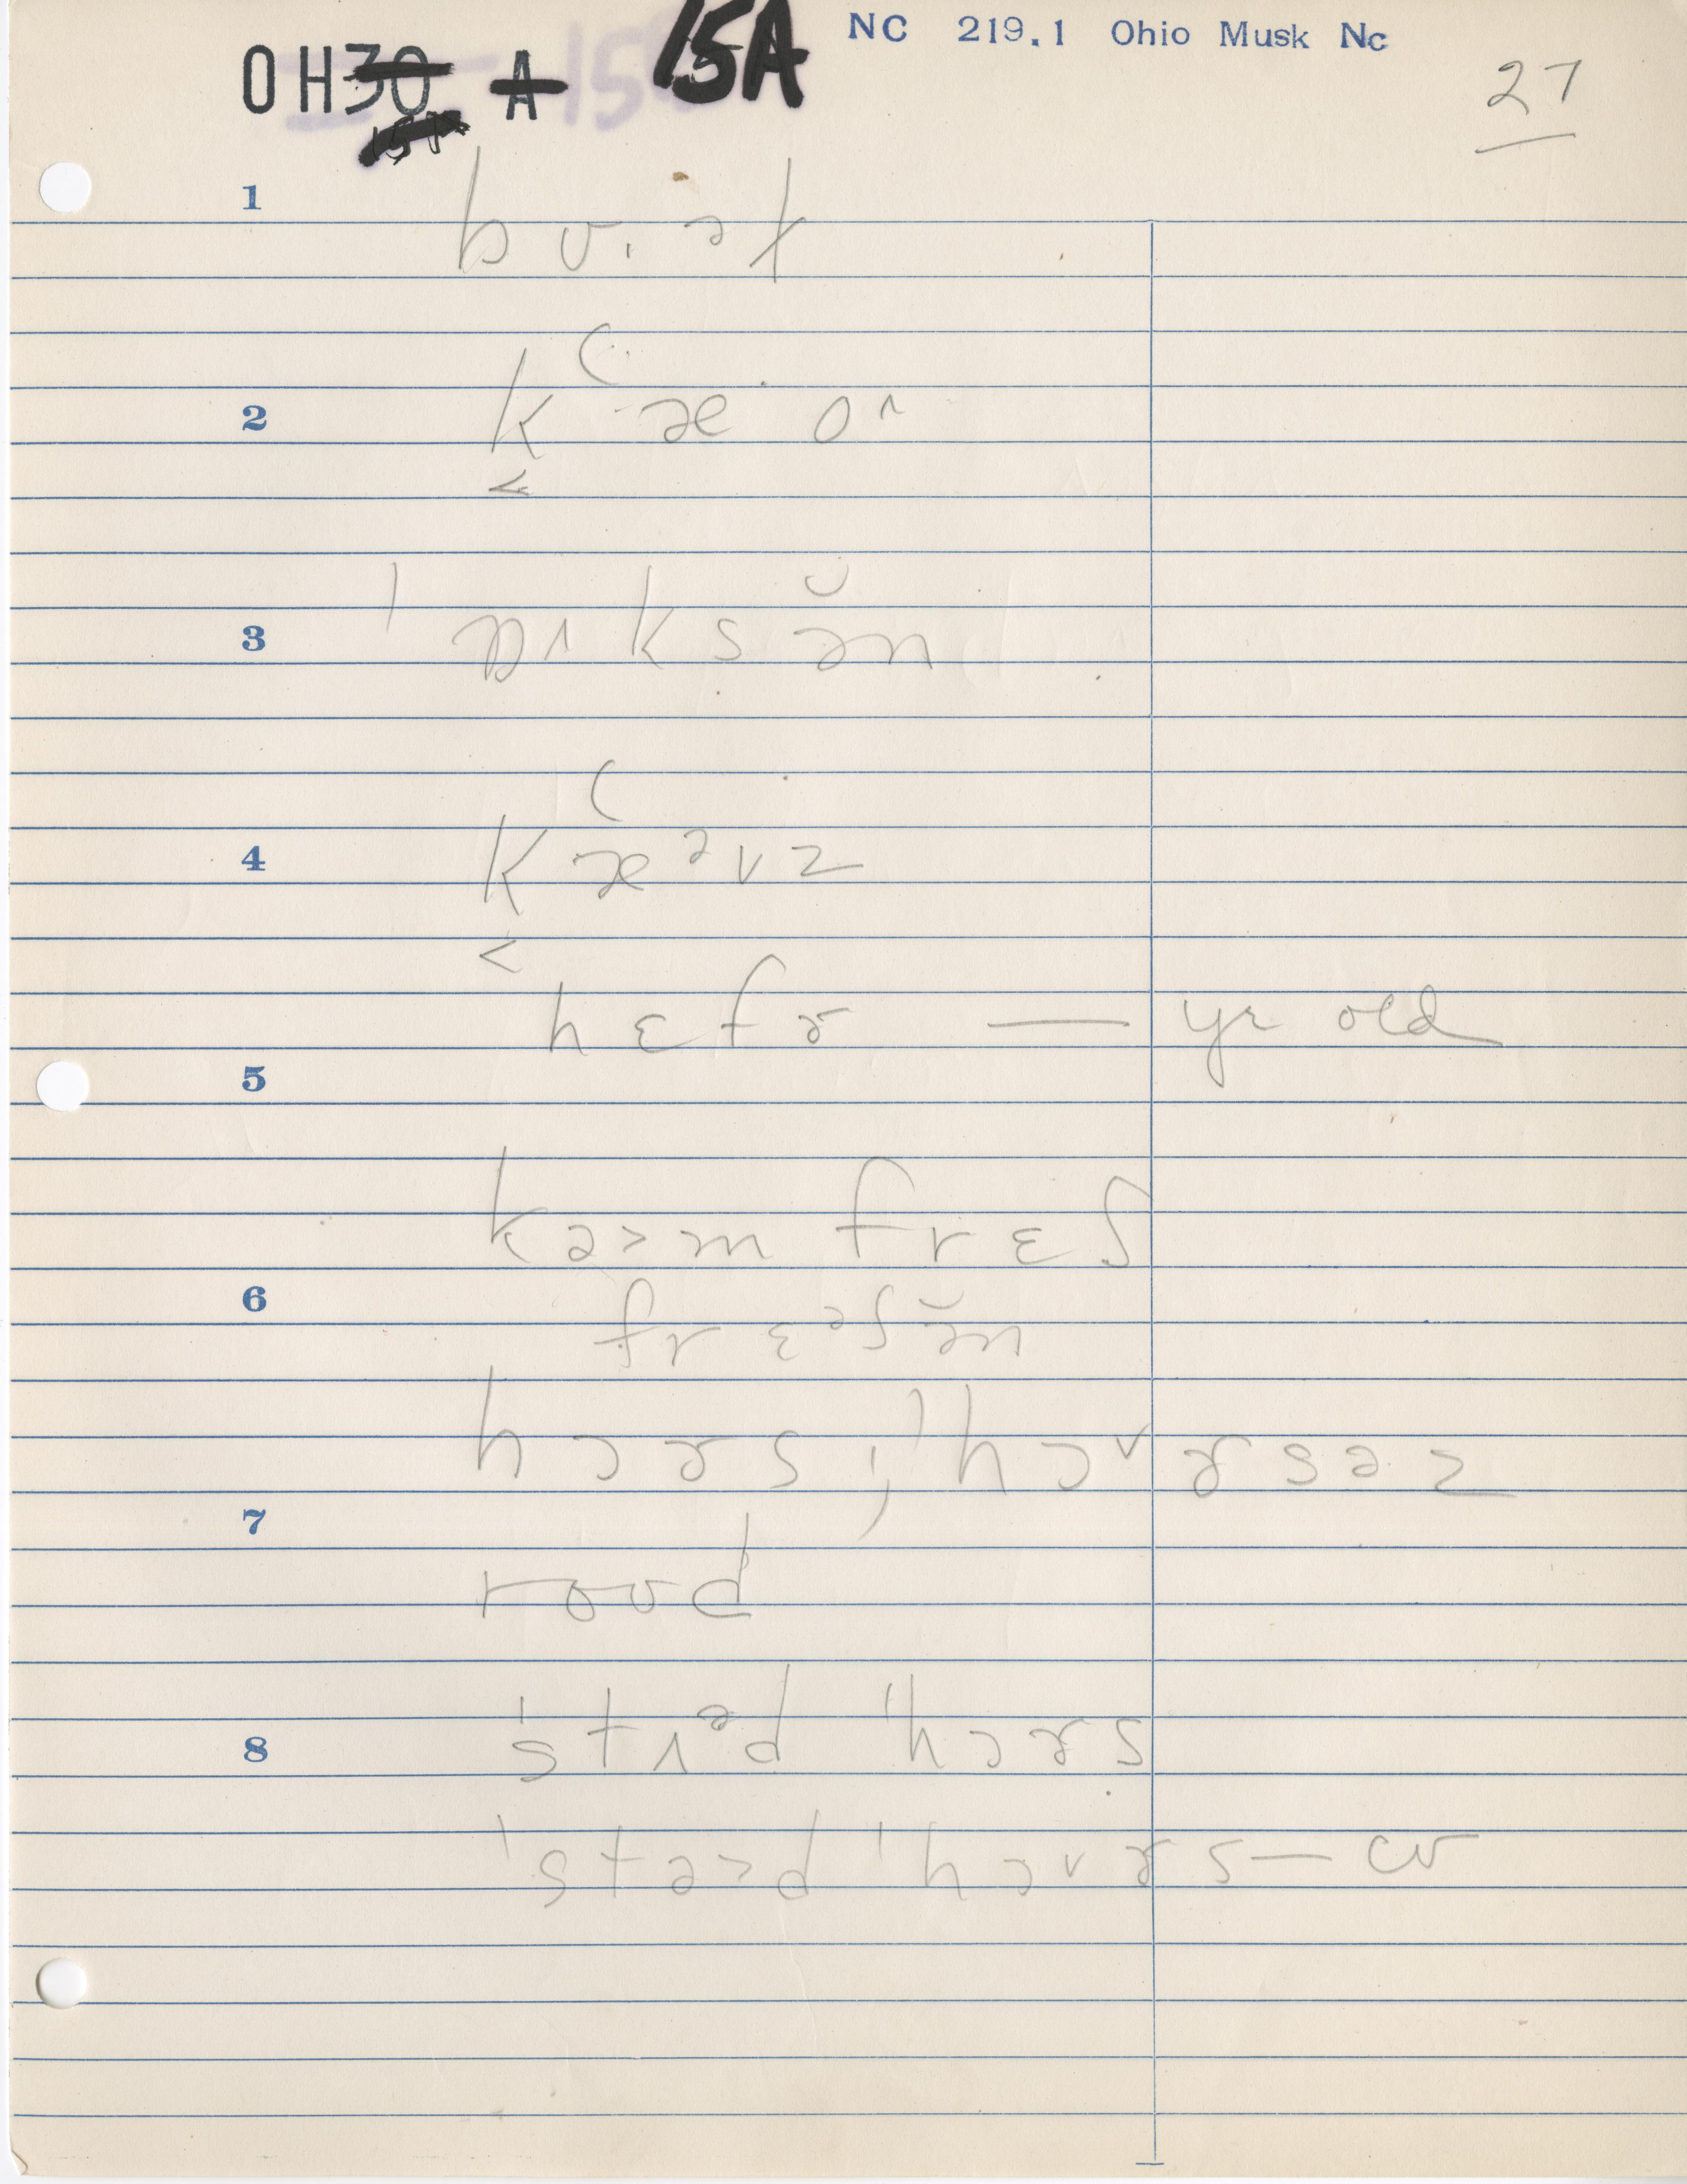 OH30 A 15A NC 219.1 Ohio Musk Nc
27
1
bʊ.ət
2
k æ o^
<
3
ˈɒɪksə̆n
4
kæᵊvz
<
hɛfɚ — yr old
5
kə>m frɛʃ
6
frɛᵊʃə̆n
hɔɚs; ˈhɔvɚsəz
7
roʊd
8
ˈstʌᵊd ˈhɔɚs
ˈstə>d ˈhɔvɚs — cv